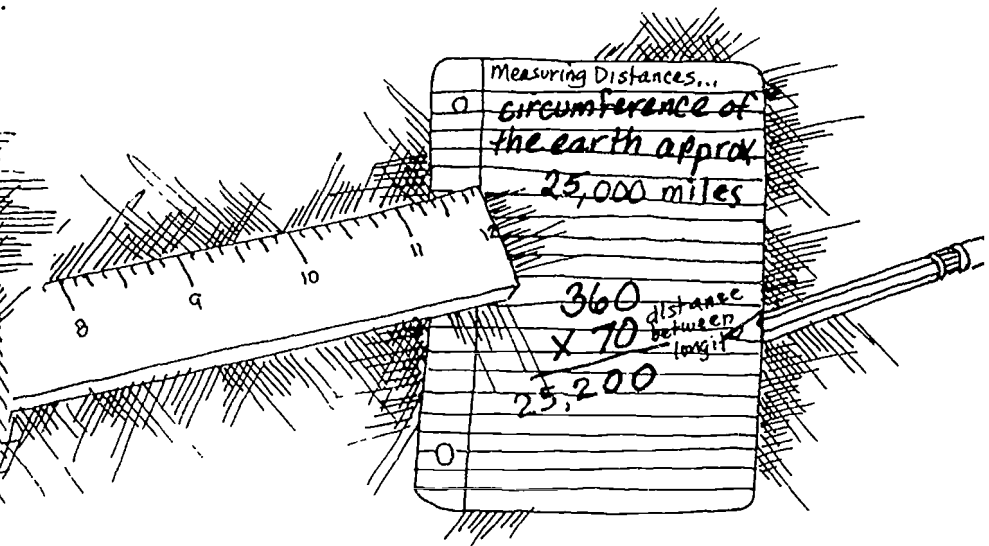 Measuring Distances...
circumference of
the earth approx
25,000 miles
8 9 10 11 12
360
x 70
distance
between
longit
25,200